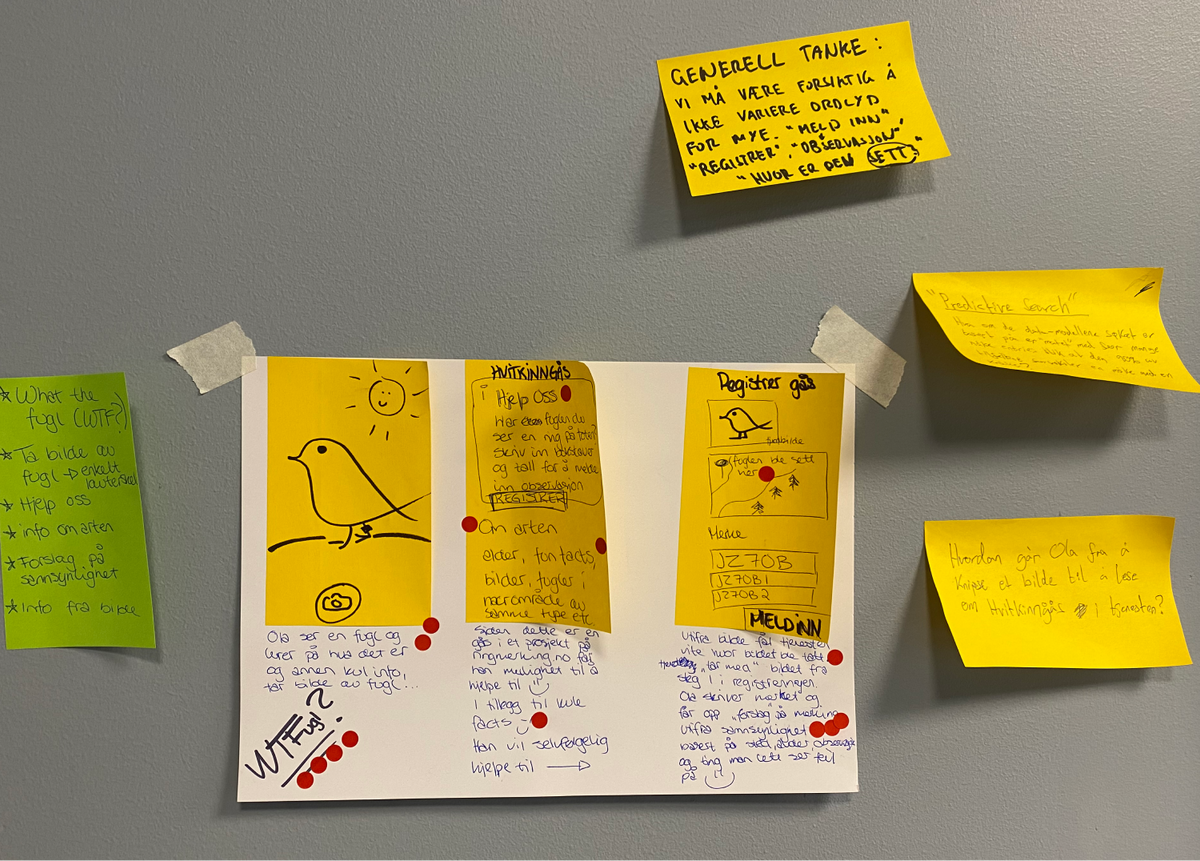 GENERELL TANKE:
VI MÅ VÆRE FORSIKTIG Å
IKKE VARIERE ORDLYD
FOR MYE. "MELD INN"
"REGISTRER", "OBSERVASJON",
"HVOR ER DEN SETT"
"Predictive Search"
Hva om de data-modellene søket er
Hvordan går Ola fra å
knipse et bilde til å lese
om Hvitkinngås i tjenesten?
★ What the
fugl (WTF?)
★ Ta bilde av
fugl → enkelt
★ Hjelp oss
★ info om arten
★ Forslag på
sannsynlighet
★ Info fra bilde
Ola ser en fugl og
lurer på hva det er
og annen kul info,
tar bilde av fugl...
WTFugl?
HVITKINNGÅS
Hjelp oss
Har fuglen du
ser en ring på foten?
skriv inn bokstaver
og tall for å melde
inn observasjon
REGISTRER
Om arten
alder, fun facts,
bilder, fugler i
nærområde av
samme type etc
Siden dette er en
gås i et prosjekt på
ringmerking.no får
han mulighet til å
hjelpe til
I tillegg til kule
facts
Han vil selvfølgelig
hjelpe til →
Registrer gås
fuglbilde
fuglen ble sett
her
Merke
JZ70B
JZ70B1
JZ70B2
MELD INN
Utfra bilde får tjenesten
vite hvor bildet ble tatt.
"tar med" bildet fra
steg 1 i registreringen.
Ola skriver merket og
får opp "forslag" på merking
utifra sannsynlighet
basert på sted, alder, observasjon
og ting man lett ser feil
på